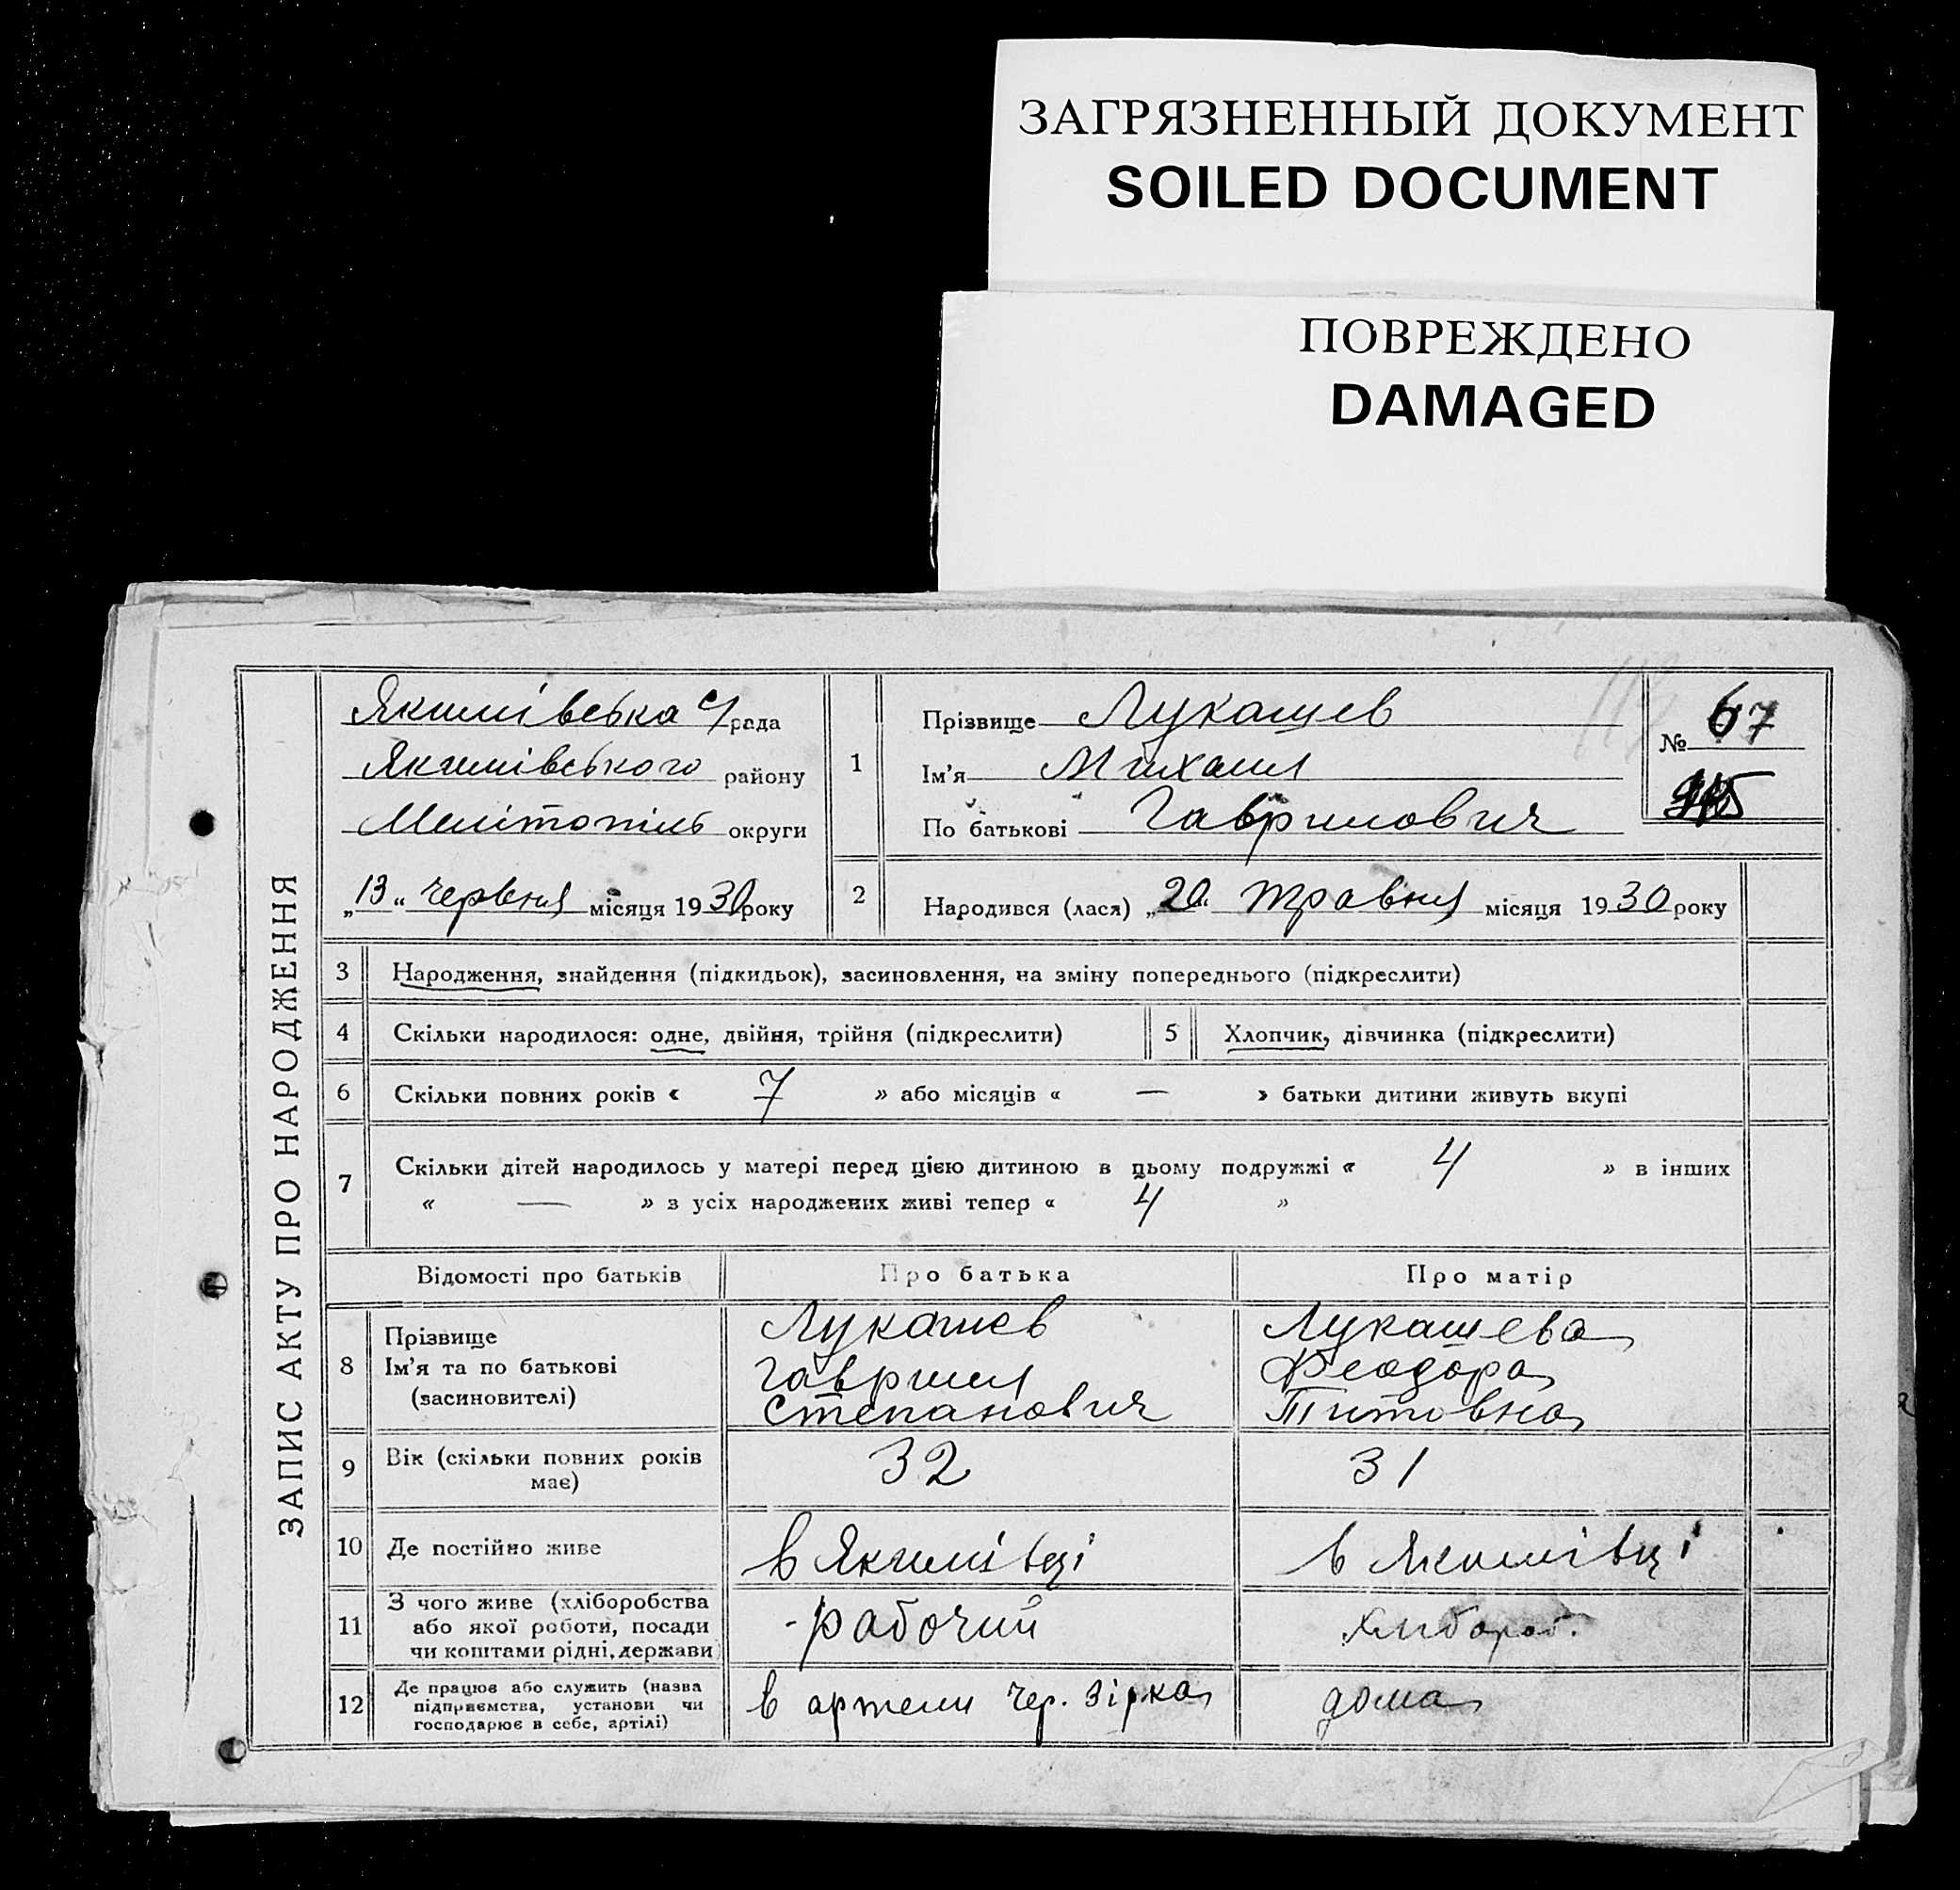 ЗАГРЯЗНЕННЫЙ ДОКУМЕНТ
SOILED DOCUMENT
ПОВРЕЖДЕНО
DAMAGED
ЗАПИС АКТУ ПРО НАРОДЖЕННЯ
Якимівська с/рада
Якимівського району
Мелітопіль округи
„13“ червня місяця 1930 року
1
Прізвище Лукашев
Ім'я Михаил
По батькові Гаврилович
№ 67
2
Народився (лася) „20“ травня місяця 1930 року
3 Народження, знайдення (підкидьок), засиновлення, на зміну попереднього (підкреслити)
4 Скільки народилося: одне, двійня, трійня (підкреслити) 5 Хлопчик, дівчинка (підкреслити)
6 Скільки повних років « 7 » або місяців « — » батьки дитини живуть вкупі
7 Скільки дітей народилось у матері перед цією дитиною в цьому подружжі « 4 » в інших
« — » з усіх народжених живі тепер « 4 »
Відомості про батьків Про батька Про матір
8 Прізвище
Ім'я та по батькові
(засиновителі)
Лукашев
Гавриил
Степанович
Лукашева
Феодора
Титовна
9 Вік (скільки повних років
має)
32
31
10 Де постійно живе в Якимівці в Якимівці
11 З чого живе (хліборобства
або якої роботи, посади
чи коштами рідні, держави
-рабочий
хлибороб.
12 Де працює або служить (назва
підприємства, установи чи
господарює в себе, артілі)
в артели Чер. Зірка
дома